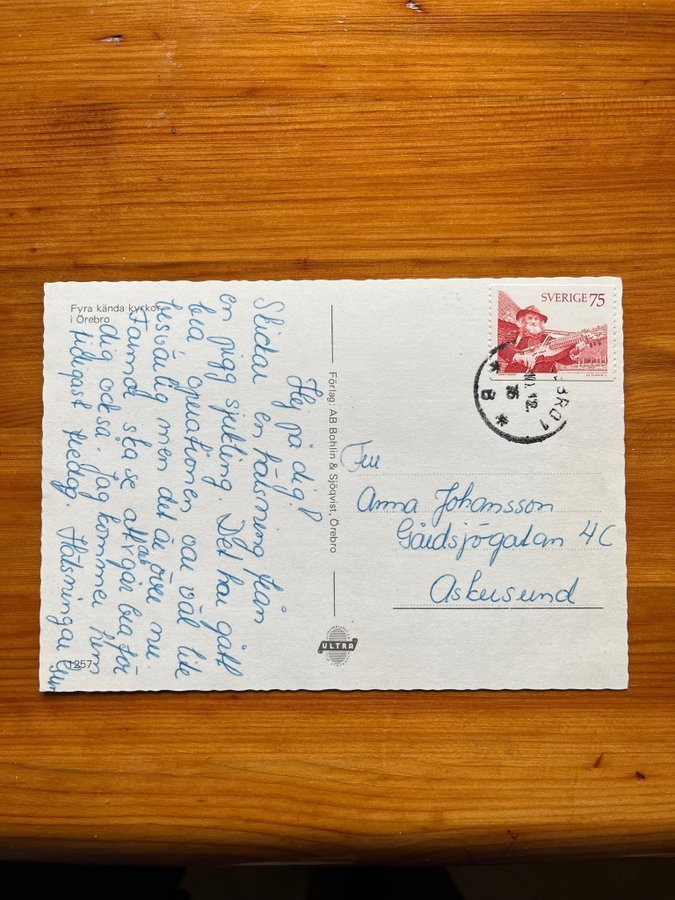 Fyra kända kyrkor
i Örebro
Hej på dig!
Skickar en hälsning från
en pigg sjukling. Det har gått
bra, operationen var väl lite
besvärlig men det är över nu.
Found ska se att det går bra för
dig också. Jag kommer hem
tidigast fredag. Hälsningar Gun
1257
Förlag: AB Bohlin & Sjöqvist, Örebro
ULTRA
SVERIGE 75
ÖREBRO 1
12.
75
8
Fru
Anna Johansson
Gårdsjögatan 4C
Askersund